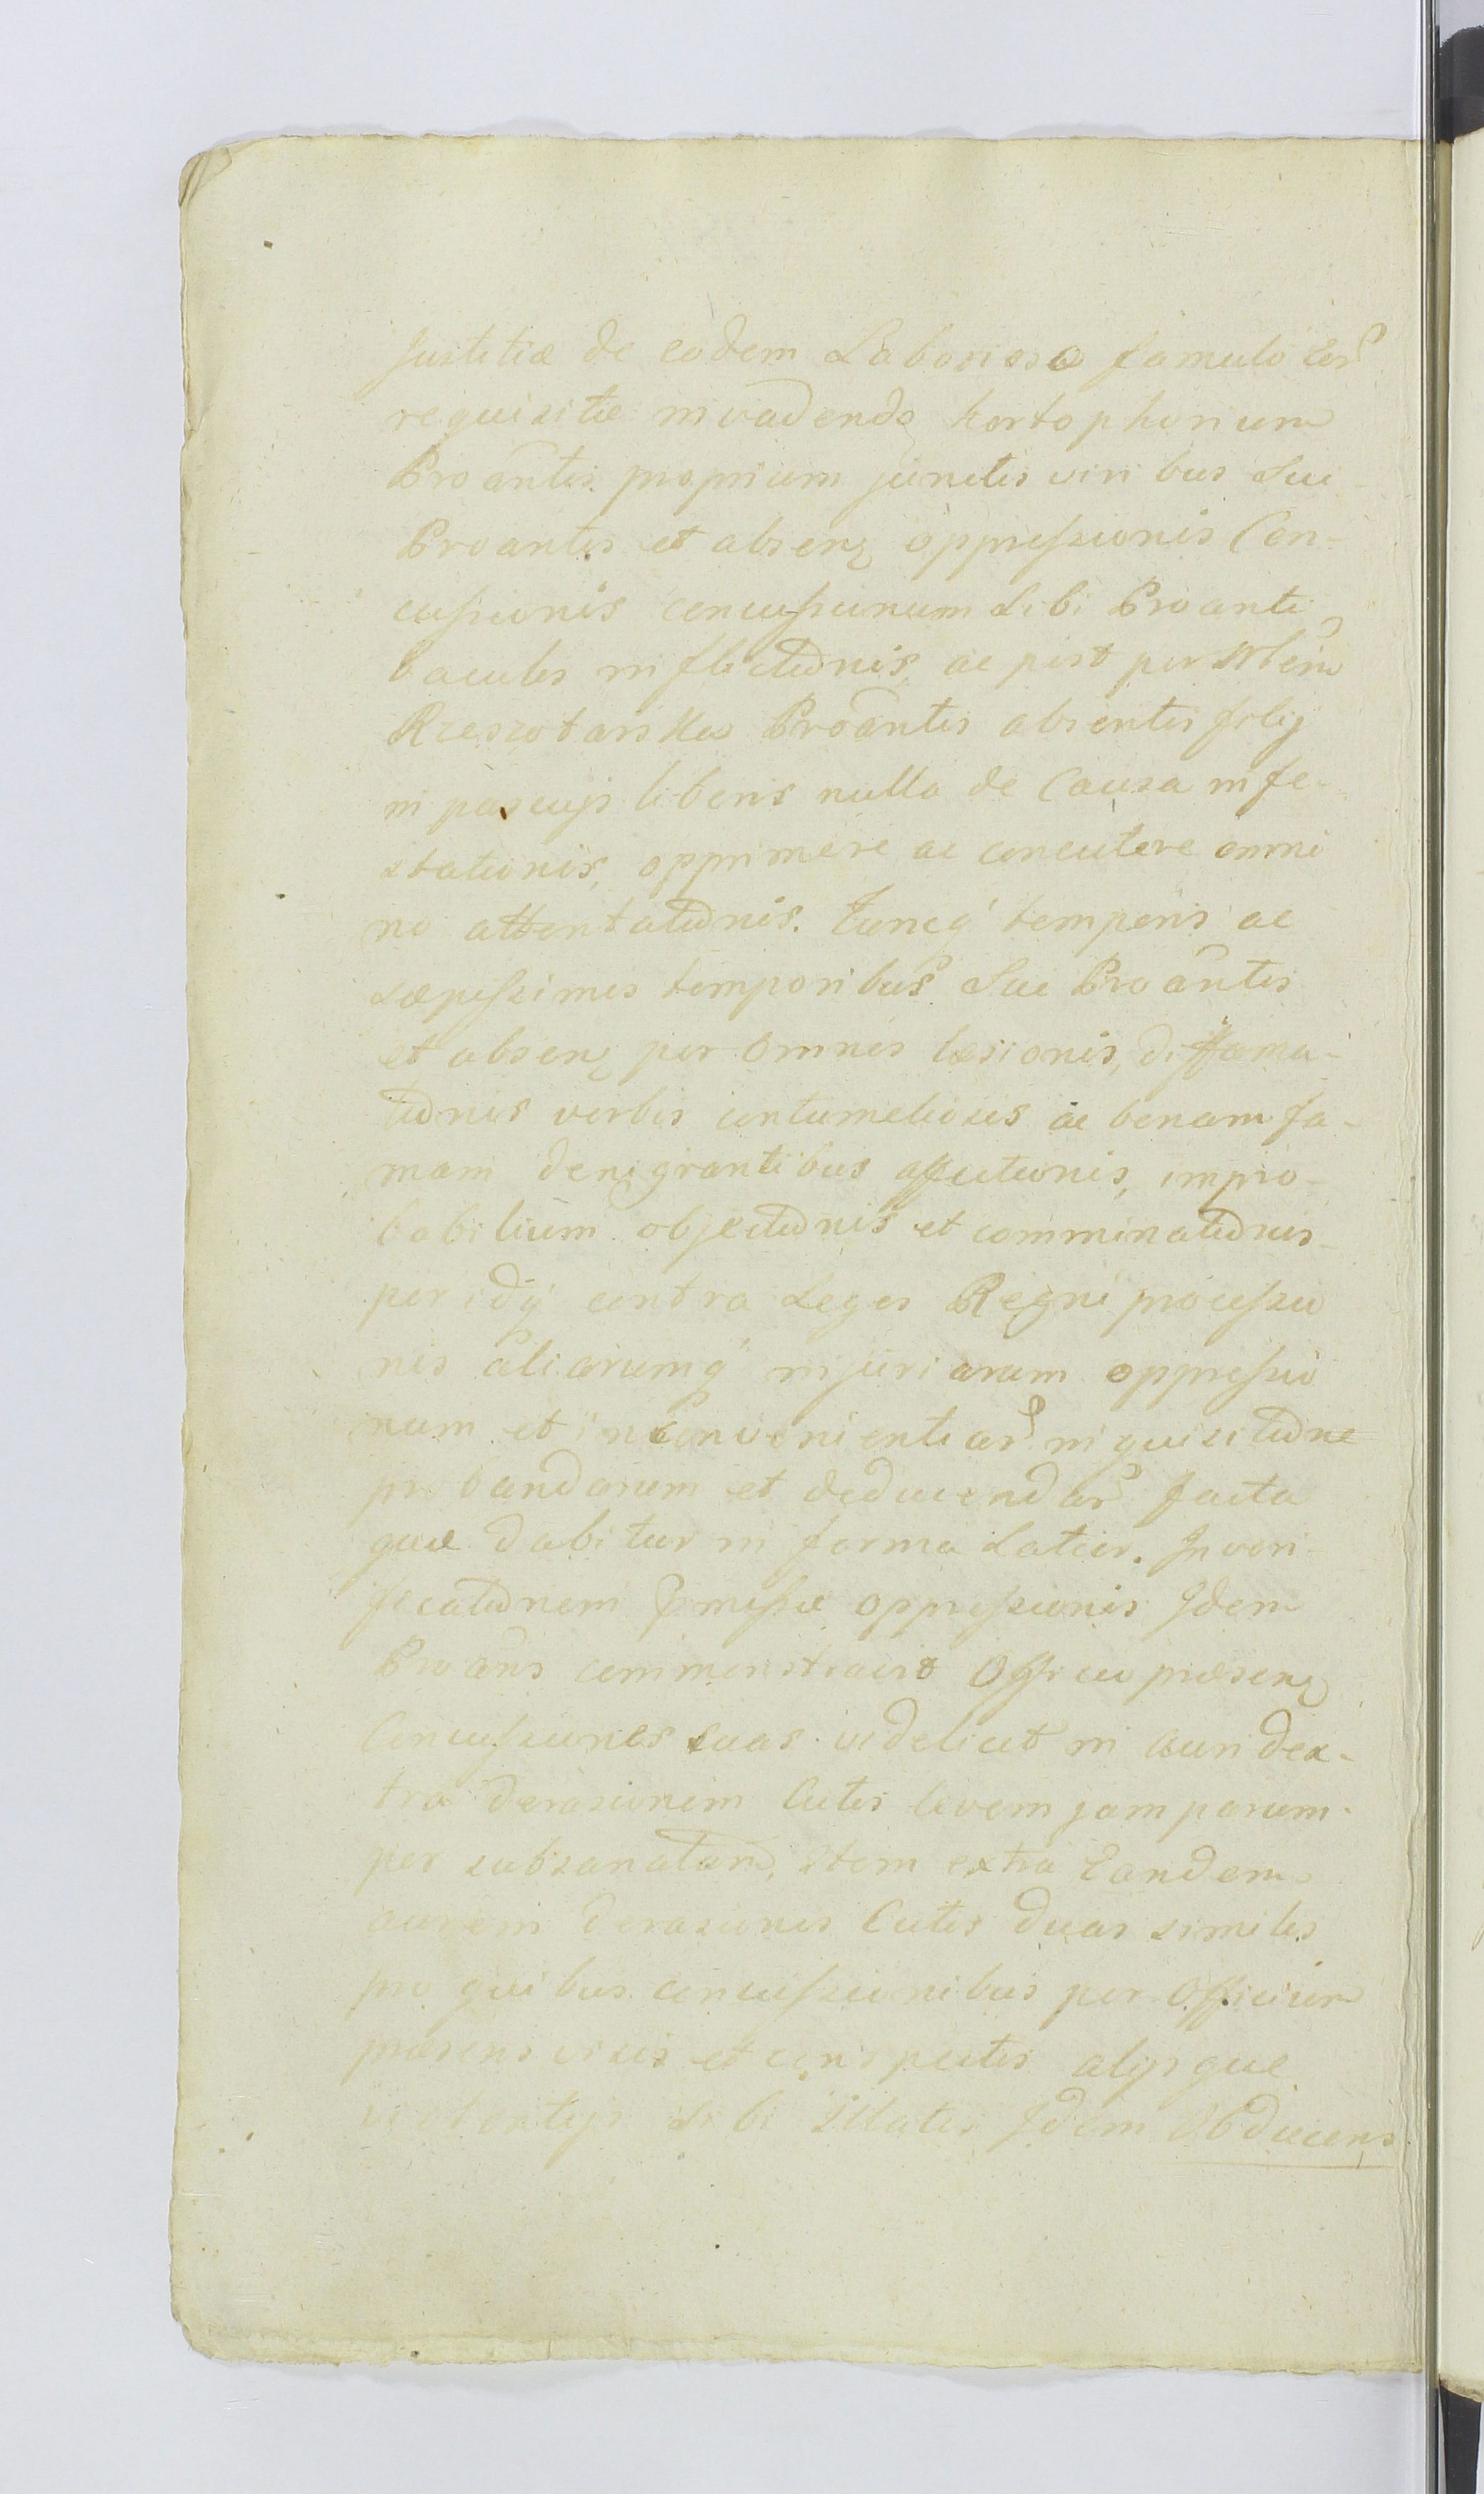 Justitiæ de eodem Laborioso famulo eor
requisitæ invadendo hortophorium
Proãntis proprium junctis viribus Sui
Proantis et absenȝ oppressionis Con-
cussionis concussionum Sibi Proanti
baculis inflictionis, ac post per
Rzeszotarskea Proãntis absentis filij
in pascujs liberis nulla de Causa infe-
stationis, opprimere ac concutere omni
no attentationis. Tuncq' temporis ac
sæpissimis temporibus Sui Proãntis
et absenȝ per omnes læsionis, diffama-
tionis verbis contumeliosis ac bonam fa-
mam denigrantibus affectionis, impro-
babilium objectionis et comminationis
per idq' contra Leges Regni processio
nis aliarumq' injuriarum oppressio
num et inconvenientiar inquisitione
probandarum et deducendar facta
quæ dabitur in forma Latior. In veri-
ficationem præmissæ oppressionis Idem
Proãns commonstravit Officio præsenȝ
Concussiones suas videlicet in auri dex-
tra derasionem Cutis levem jam parum-
per subsanatam, Item extra Eandem
aurem derasiones Cutis duas similes
pro quibus concussionibus per Officium
præsens visis et conspectis alijsque
violentijs Sibi illatis Idem Obducens